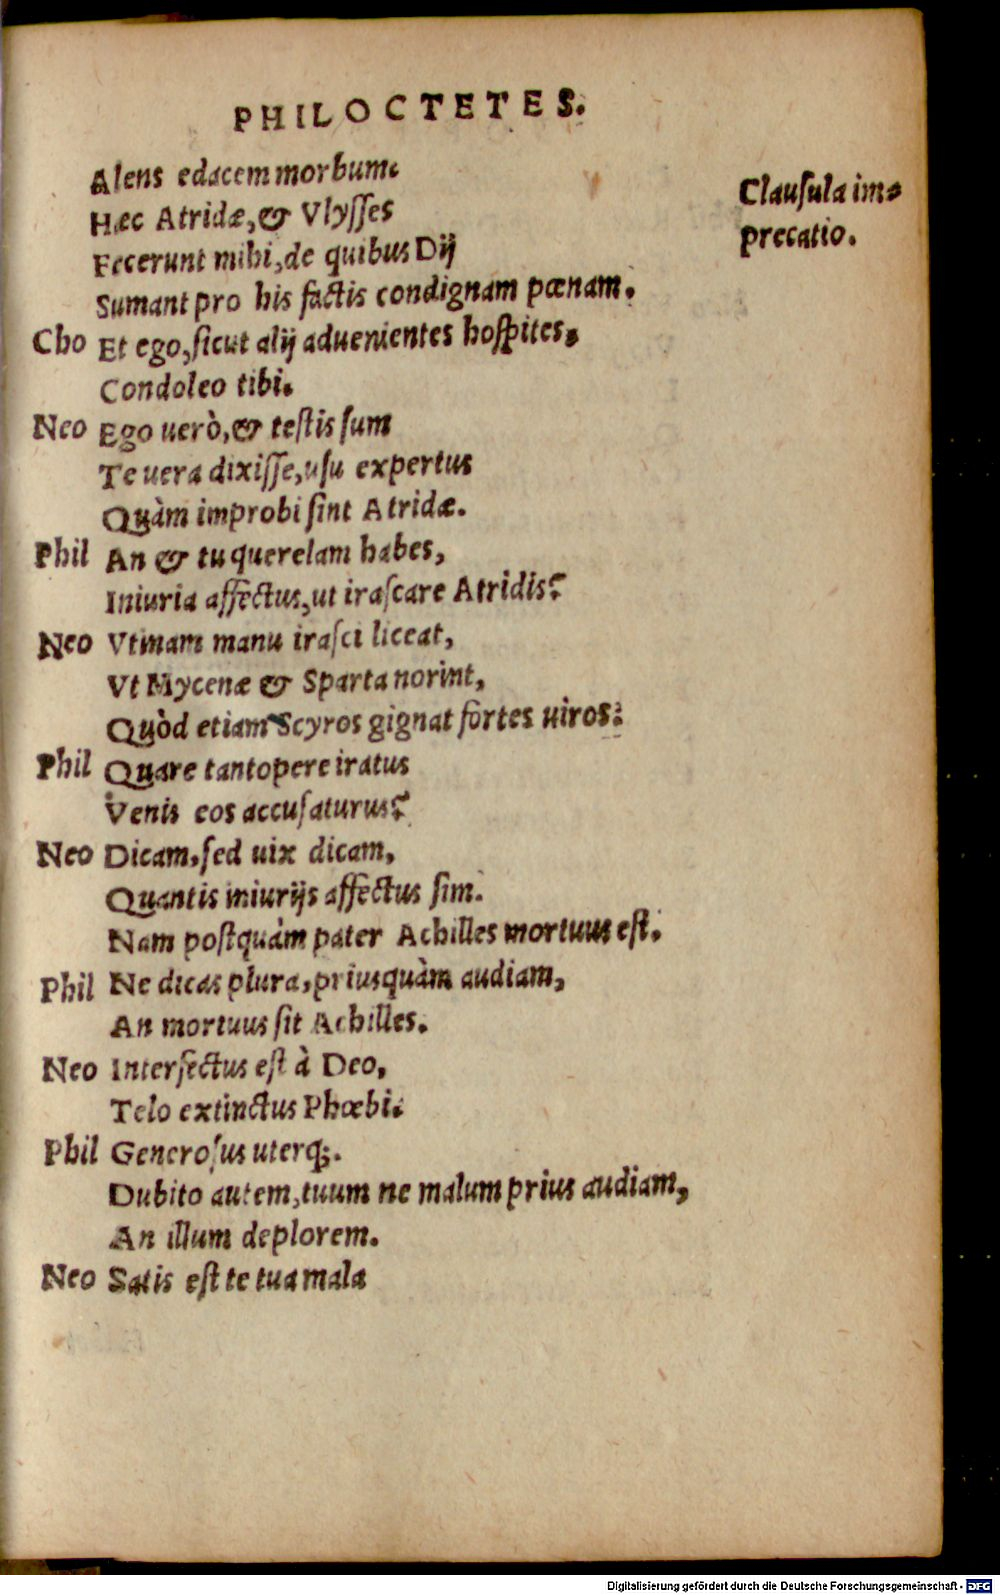 PHILOCTETES.
Alens edacem morbum.
Hæc Atridæ, & Vlysses
Fecerunt mihi, de quibus Dij
Sumant pro his factis condignam pœnam.
Clausula im-
precatio.
Cho Et ego, sicut alij aduenientes hospites,
Condoleo tibi.
Neo Ego uerò, & testis sum
Te uera dixisse, usu expertus
Quàm improbi sint Atridæ.
Phil An & tu querelam habes,
Iniuria affectus, ut irascare Atridis?
Neo Vtinam manu irasci liceat,
Vt Mycenæ & Sparta norint,
Quòd etiam Scyros gignat fortes uiros.
Phil Quare tantopere iratus
Venis eos accusaturus?
Neo Dicam, sed uix dicam,
Quantis iniurijs affectus sim.
Nam postquàm pater Achilles mortuus est.
Phil Ne dicas plura, priusquàm audiam,
An mortuus sit Achilles.
Neo Interfectus est à Deo,
Telo extinctus Phœbi.
Phil Generosus uterq;.
Dubito autem, tuum ne malum prius audiam,
An illum deplorem.
Neo Satis est te tua mala
Digitalisierung gefördert durch die Deutsche Forschungsgemeinschaft - DFG